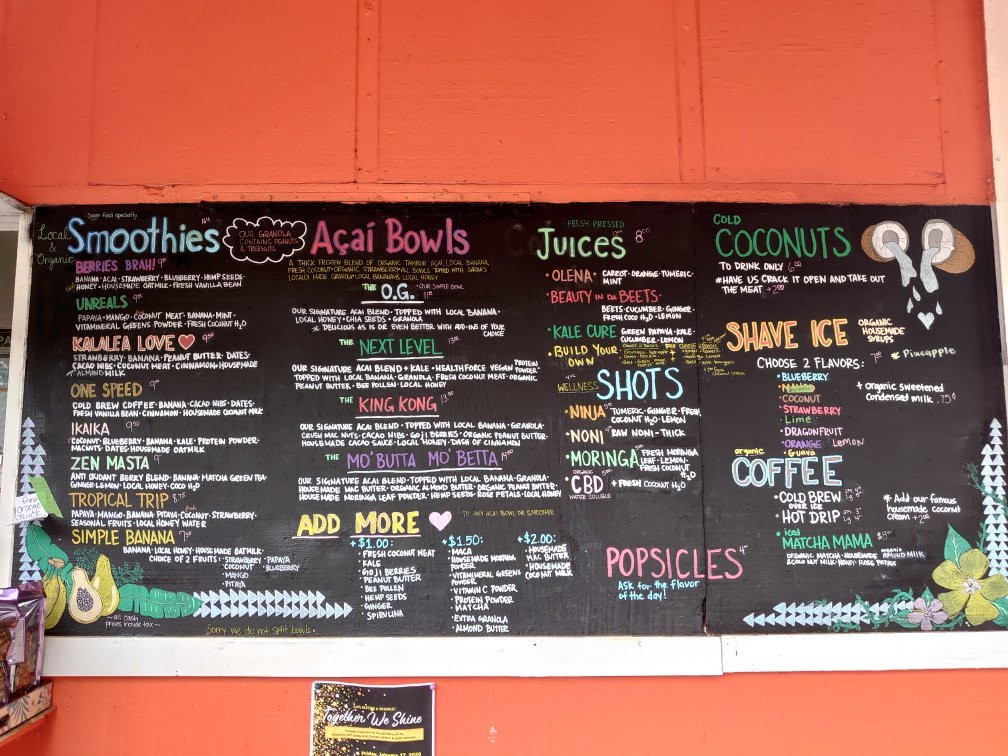 Super food specialty
Local
&
Organic
Smoothies
OUR GRANOLA
CONTAINS PEANUTS
& TREENUTS
BERRIES BRAH!
BANANA · ACAI · STRAWBERRY · BLUEBERRY · HEMP SEEDS ·
HONEY · HOUSEMADE OATMILK · FRESH VANILLA BEAN
UNREALS
PAPAYA · MANGO · COCONUT MEAT · BANANA · MINT ·
VITAMINERAL GREENS POWDER · FRESH COCONUT H2O
KALALEA LOVE
STRAWBERRY · BANANA · PEANUT BUTTER · DATES ·
CACAO NIBS · COCONUT MEAT · CINNAMON · HOUSEMADE
ALMOND MILK
ONE SPEED
COLD BREW COFFEE · BANANA · CACAO NIBS · DATES ·
FRESH VANILLA BEAN · CINNAMON · HOUSEMADE COCONUT MILK
IKAIKA
COCONUT · BLUEBERRY · BANANA · KALE · PROTEIN POWDER ·
MACNUTS · DATES · HOUSEMADE OATMILK
ZEN MASTA
ANTI OXIDANT BERRY BLEND · BANANA · MATCHA GREEN TEA ·
GINGER · LEMON · LOCAL HONEY · COCO H2O
TROPICAL TRIP
PAPAYA · MANGO · BANANA · PITAYA · COCONUT · STRAWBERRY ·
SEASONAL FRUITS · LOCAL HONEY · WATER
SIMPLE BANANA
BANANA · LOCAL HONEY · HOUSEMADE OATMILK ·
CHOICE OF 2 FRUITS · STRAWBERRY · PAPAYA
COCONUT · BLUEBERRY
· MANGO
· PITAYA
all cash
prices include tax
Sorry we do not split bowls.
Açaí Bowls
A THICK FROZEN BLEND OF ORGANIC TAMBOR ACAI, LOCAL BANANA,
FRESH COCONUT + ORGANIC STRAWBERRY
THE O.G.
OUR SIMPLE BOWL
OUR SIGNATURE ACAI BLEND · TOPPED WITH LOCAL BANANA ·
LOCAL HONEY · CHIA SEEDS + GRANOLA
DELICIOUS AS IS OR EVEN BETTER WITH ADD-INS OF YOUR
CHOICE
THE NEXT LEVEL
OUR SIGNATURE ACAI BLEND + KALE + HEALTHFORCE VEGAN PROTEIN
POWDER ·
TOPPED WITH LOCAL BANANA · GRANOLA · FRESH COCONUT MEAT · ORGANIC
PEANUT BUTTER · BEE POLLEN · LOCAL HONEY
THE KING KONG
OUR SIGNATURE ACAI BLEND · TOPPED WITH LOCAL BANANA · GRANOLA ·
CRUSH MAC NUTS · CACAO NIBS · GOJI BERRIES · ORGANIC PEANUT BUTTER ·
HOUSEMADE CACAO SAUCE · LOCAL HONEY · DASH OF CINNAMON
THE MO' BUTTA MO' BETTA
OUR SIGNATURE ACAI BLEND · TOPPED WITH LOCAL BANANA · GRANOLA ·
HOUSEMADE MAC BUTTER · ORGANIC ALMOND BUTTER · ORGANIC PEANUT BUTTER ·
HOUSEMADE MORINGA LEAF POWDER · HEMP SEEDS · ROSE PETALS · LOCAL HONEY
ADD MORE
TO ANY ACAI BOWL OR SMOOTHIE
+$1.00:
· FRESH COCONUT MEAT
· KALE
· GOJI BERRIES
· PEANUT BUTTER
· BEE POLLEN
· HEMP SEEDS
· GINGER
· SPIRULINA
+$1.50:
· MACA
· HOUSEMADE MORINGA
POWDER
· VITAMINERAL GREENS
POWDER
· VITAMIN C POWDER
· PROTEIN POWDER
· MATCHA
· EXTRA GRANOLA
· ALMOND BUTTER
+$2.00:
· HOUSEMADE
MAC BUTTER
· HOUSEMADE
COCONUT MILK
FRESH PRESSED
Juices
· OLENA · CARROT · ORANGE · TUMERIC ·
MINT
· BEAUTY IN DA BEETS ·
BEETS · CUCUMBER · GINGER
FRESH COCO H2O · LEMON
· KALE CURE GREEN PAPAYA · KALE ·
CUCUMBER · LEMON
· BUILD YOUR
OWN
WELLNESS SHOTS
· NINJA TUMERIC · GINGER · FRESH
COCONUT H2O · LEMON
· NONI RAW NONI · THICK
· MORINGA FRESH MORINGA
LEAF · LEMON ·
FRESH COCONUT
H2O
ORGANIC
· CBD + FRESH COCONUT H2O
WATER SOLUBLE
POPSICLES
Ask for the flavor
of the day!
COLD
COCONUTS
TO DRINK ONLY
* HAVE US CRACK IT OPEN AND TAKE OUT
THE MEAT +2.00
SHAVE ICE
ORGANIC
HOUSEMADE
SYRUPS
CHOOSE 2 FLAVORS:
* Pineapple
· BLUEBERRY
· COCONUT
· STRAWBERRY
· Lime
· DRAGONFRUIT
· ORANGE · Lemon
· Guava
+ organic sweetened
condensed milk .75¢
organic
COFFEE
· COLD BREW
OVER ICE
· HOT DRIP
* Add our famous
housemade coconut
cream +2.00
· iced
MATCHA MAMA
ORGANIC MATCHA · HOUSEMADE ALMOND MILK
COCONUT MILK · HONEY · ROSE PETALS
Together We Shine
Friday, January 17, 2020